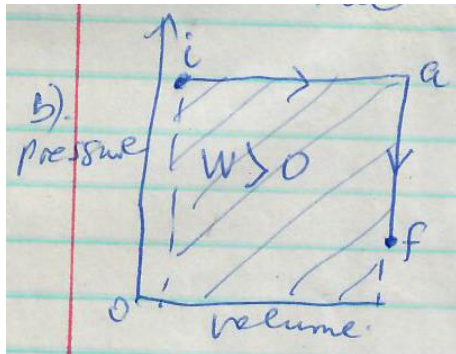 i
a
b).
pressure
W>0
f
0
volume.